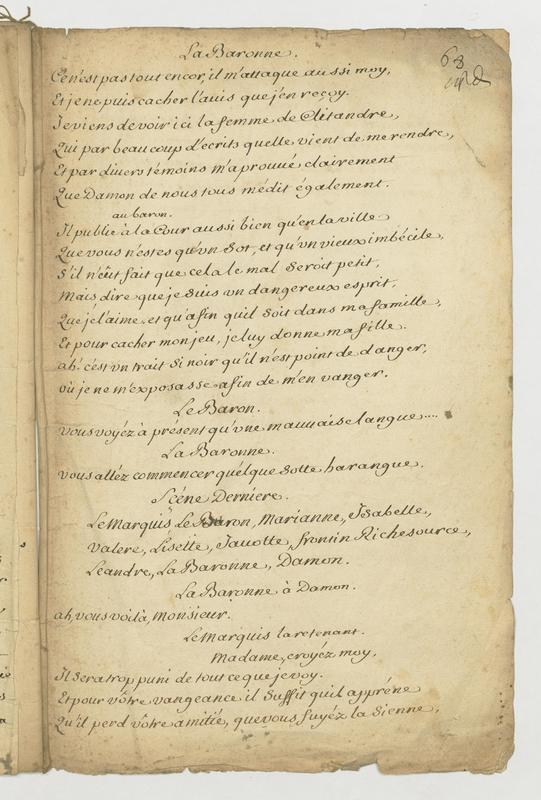 68
La Baronne.
Ce n'est pas tout encor, il m'attaque aussi moy,
Et je ne puis cacher l'auis que j'en reçoy.
Je viens de voir ici la femme de Clitandre,
Qui par beaucoup d'écrits quelle vient de me rendre,
Et par divers témoins m'a prouvé clairement
Que Damon de nous tous médit également.
au baron.
Il publie à la Cour aussi bien qu'en la ville
Que vous n'estes qu'vn Sot, et qu'vn vieux imbécile,
S'il n'eût fait que cela le mal seroit petit,
Mais dire que je suis vn dangereux esprit,
Que je l'aime, et qu'afin quil soit dans ma famille,
Et pour cacher mon jeu, je luy donne ma fille.
ah! c'est vn trait si noir qu'il n'est point de danger,
où je ne m'exposasse afin de m'en vanger.
Le Baron.
vous voyéz à présent qu'vne mauuaise langue....
La Baronne.
vous alléz commencer quélque sotte harangue.
Scéne Derniere.
Le Marquis Le Baron, Marianne, Isabelle,
Valere, Lisette, Jauotte, fronsin Richesource,
Leandre, La Baronne, Damon.
La Baronne à Damon.
ah, vous voilà, Monsieur.
Le Marquis la retenant.
Madame, croyéz moy,
Il sera trop puni de tout ce que je voy.
Et pour vôtre vangeance il suffit quil appréne
Qu'il perd vôtre amitié, que vous fuyéz la sienne,